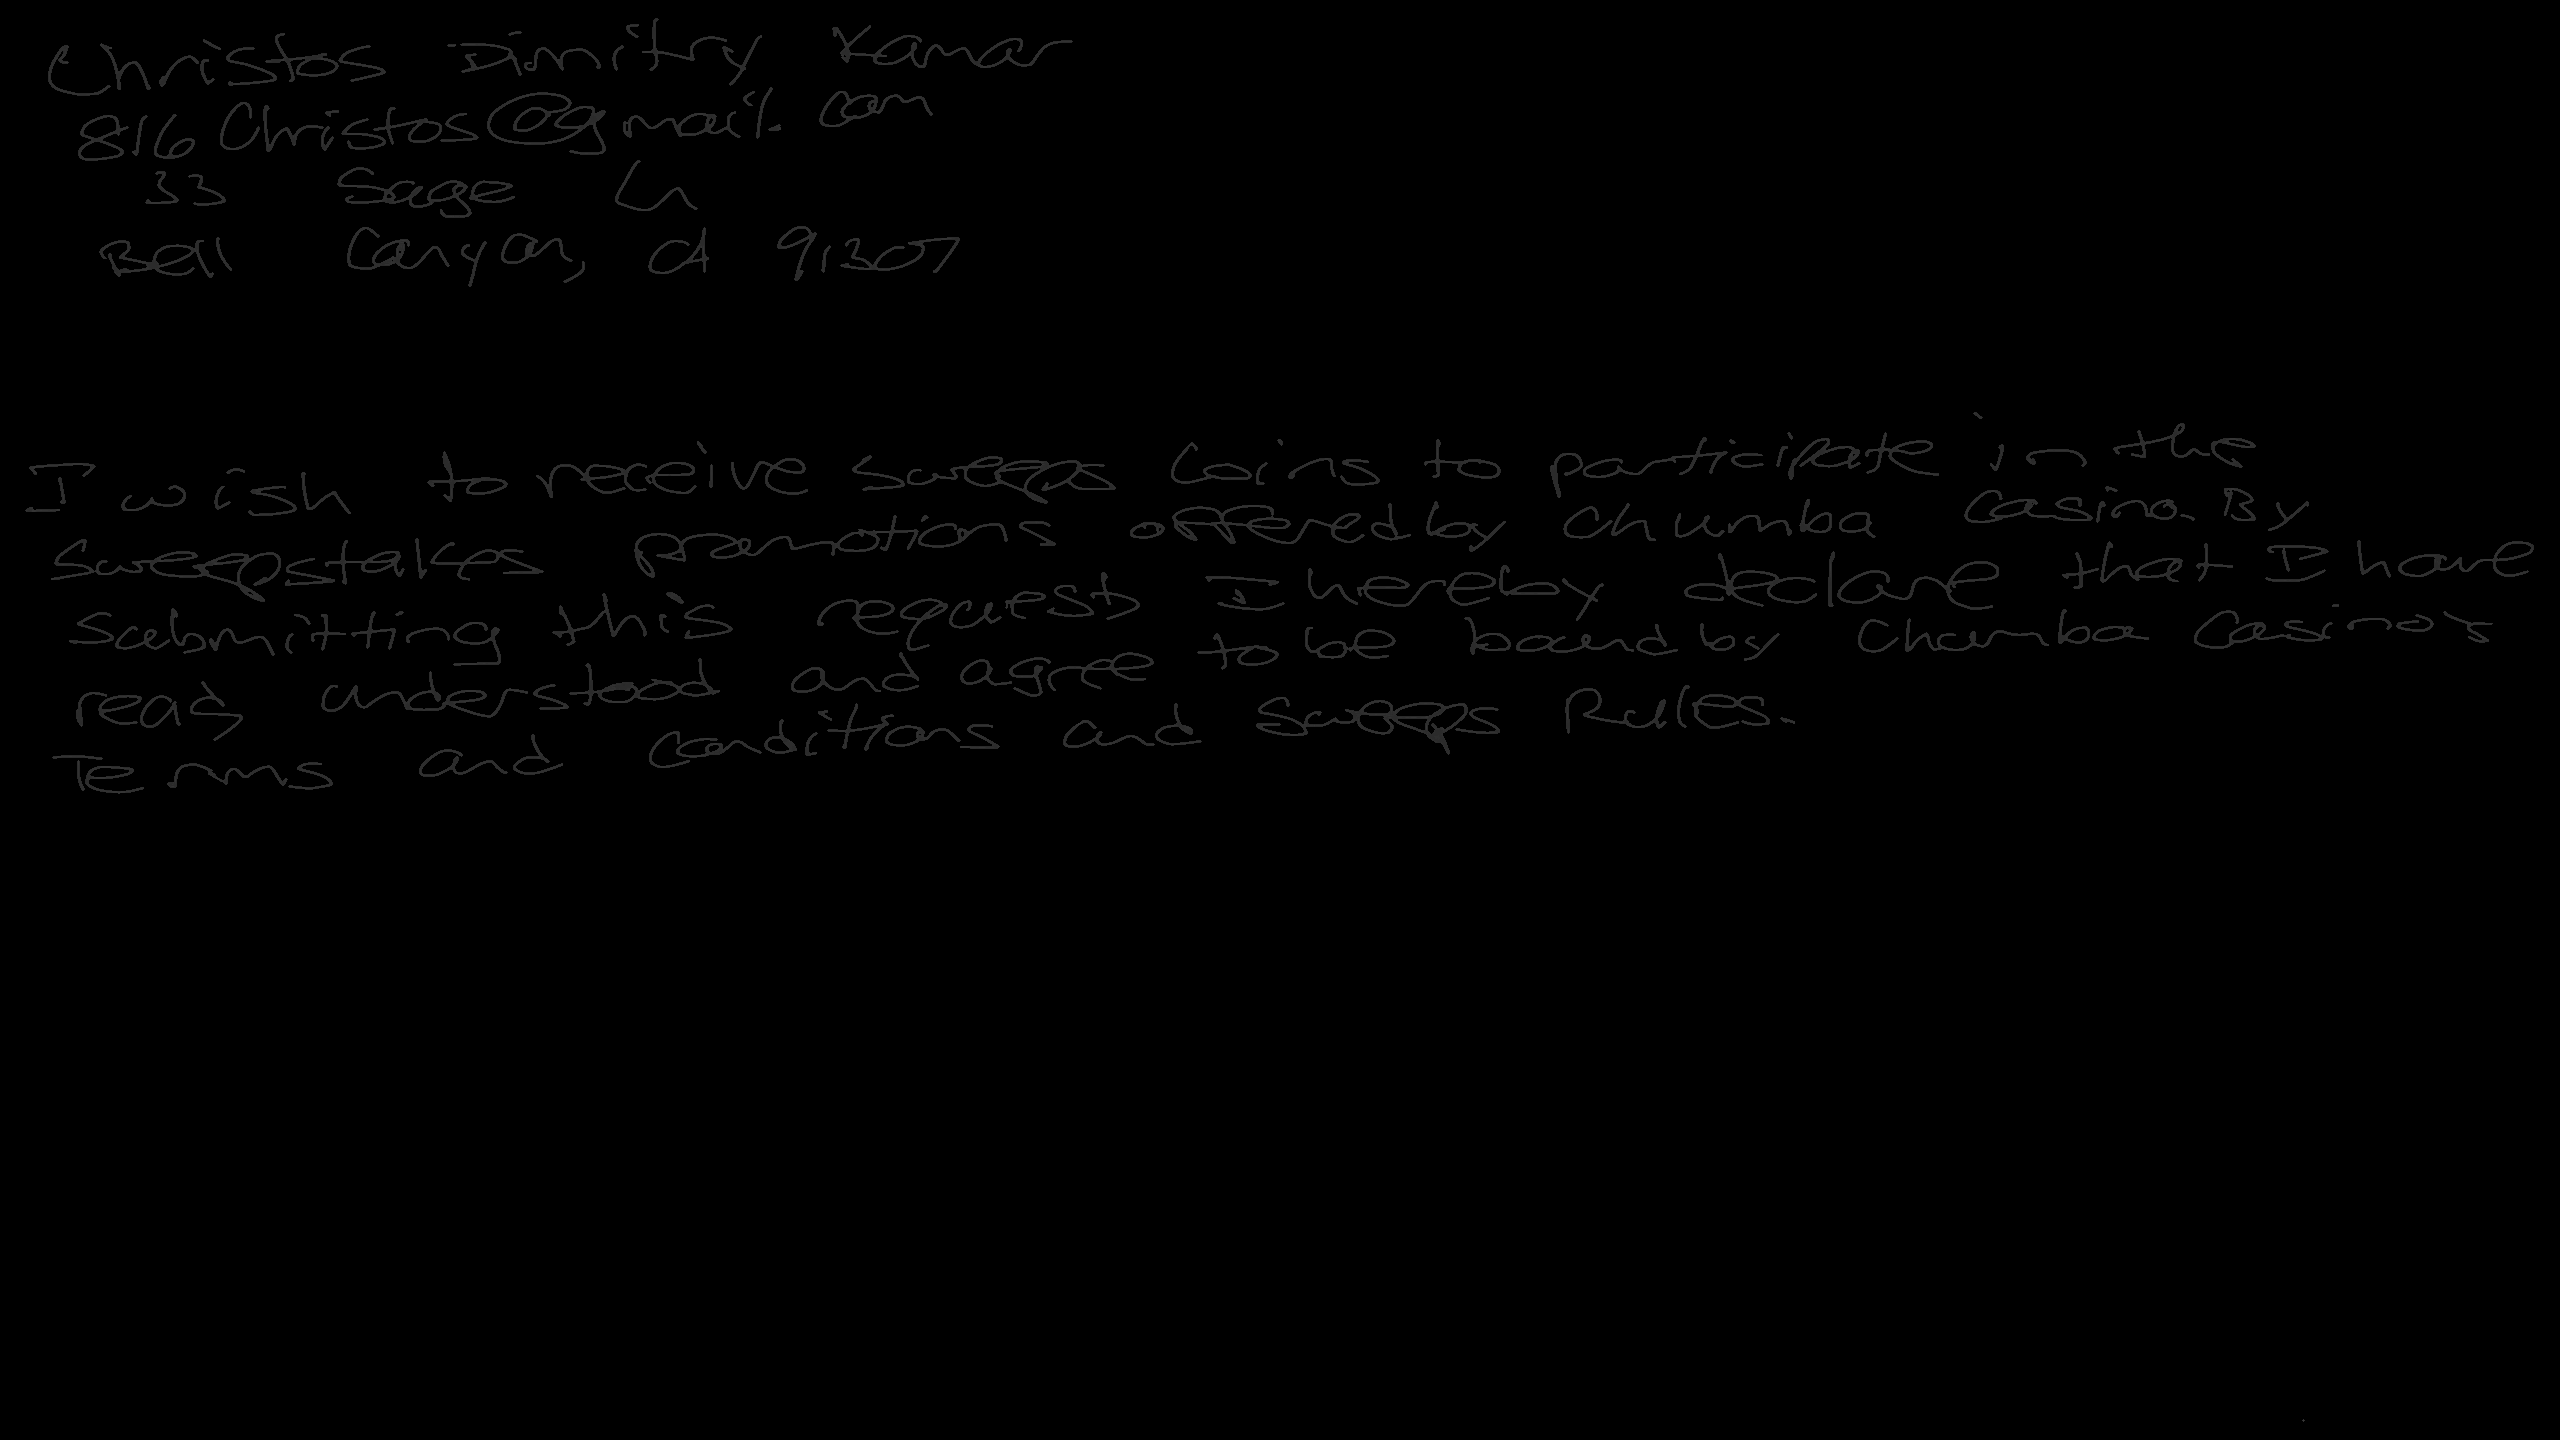 Christos Dimitry Kamar
816Christos@gmail.com
33 Sage Ln
Bell Canyon, CA 91307
I wish to receive Sweeps Coins to participate in the
Sweepstakes promotions offered by Chumba Casino. By
Submitting this request I hereby declare that I have
read, understood and agree to be bound by Chumba Casino's
Terms and Conditions and Sweeps Rules.